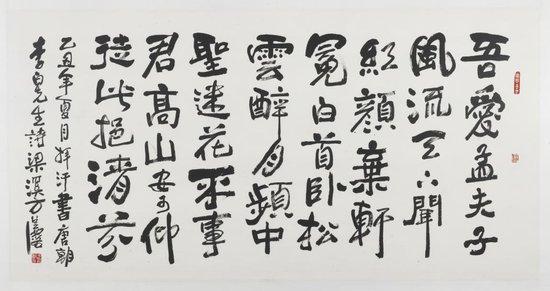 吾愛孟夫子
風流天下聞
紅顏棄軒
冕白首臥松
雲醉月頻中
聖迷花不事
君高山安可仰
徒此挹清芬
乙丑年夏月揮汗書唐朝
李白先生詩梁溪